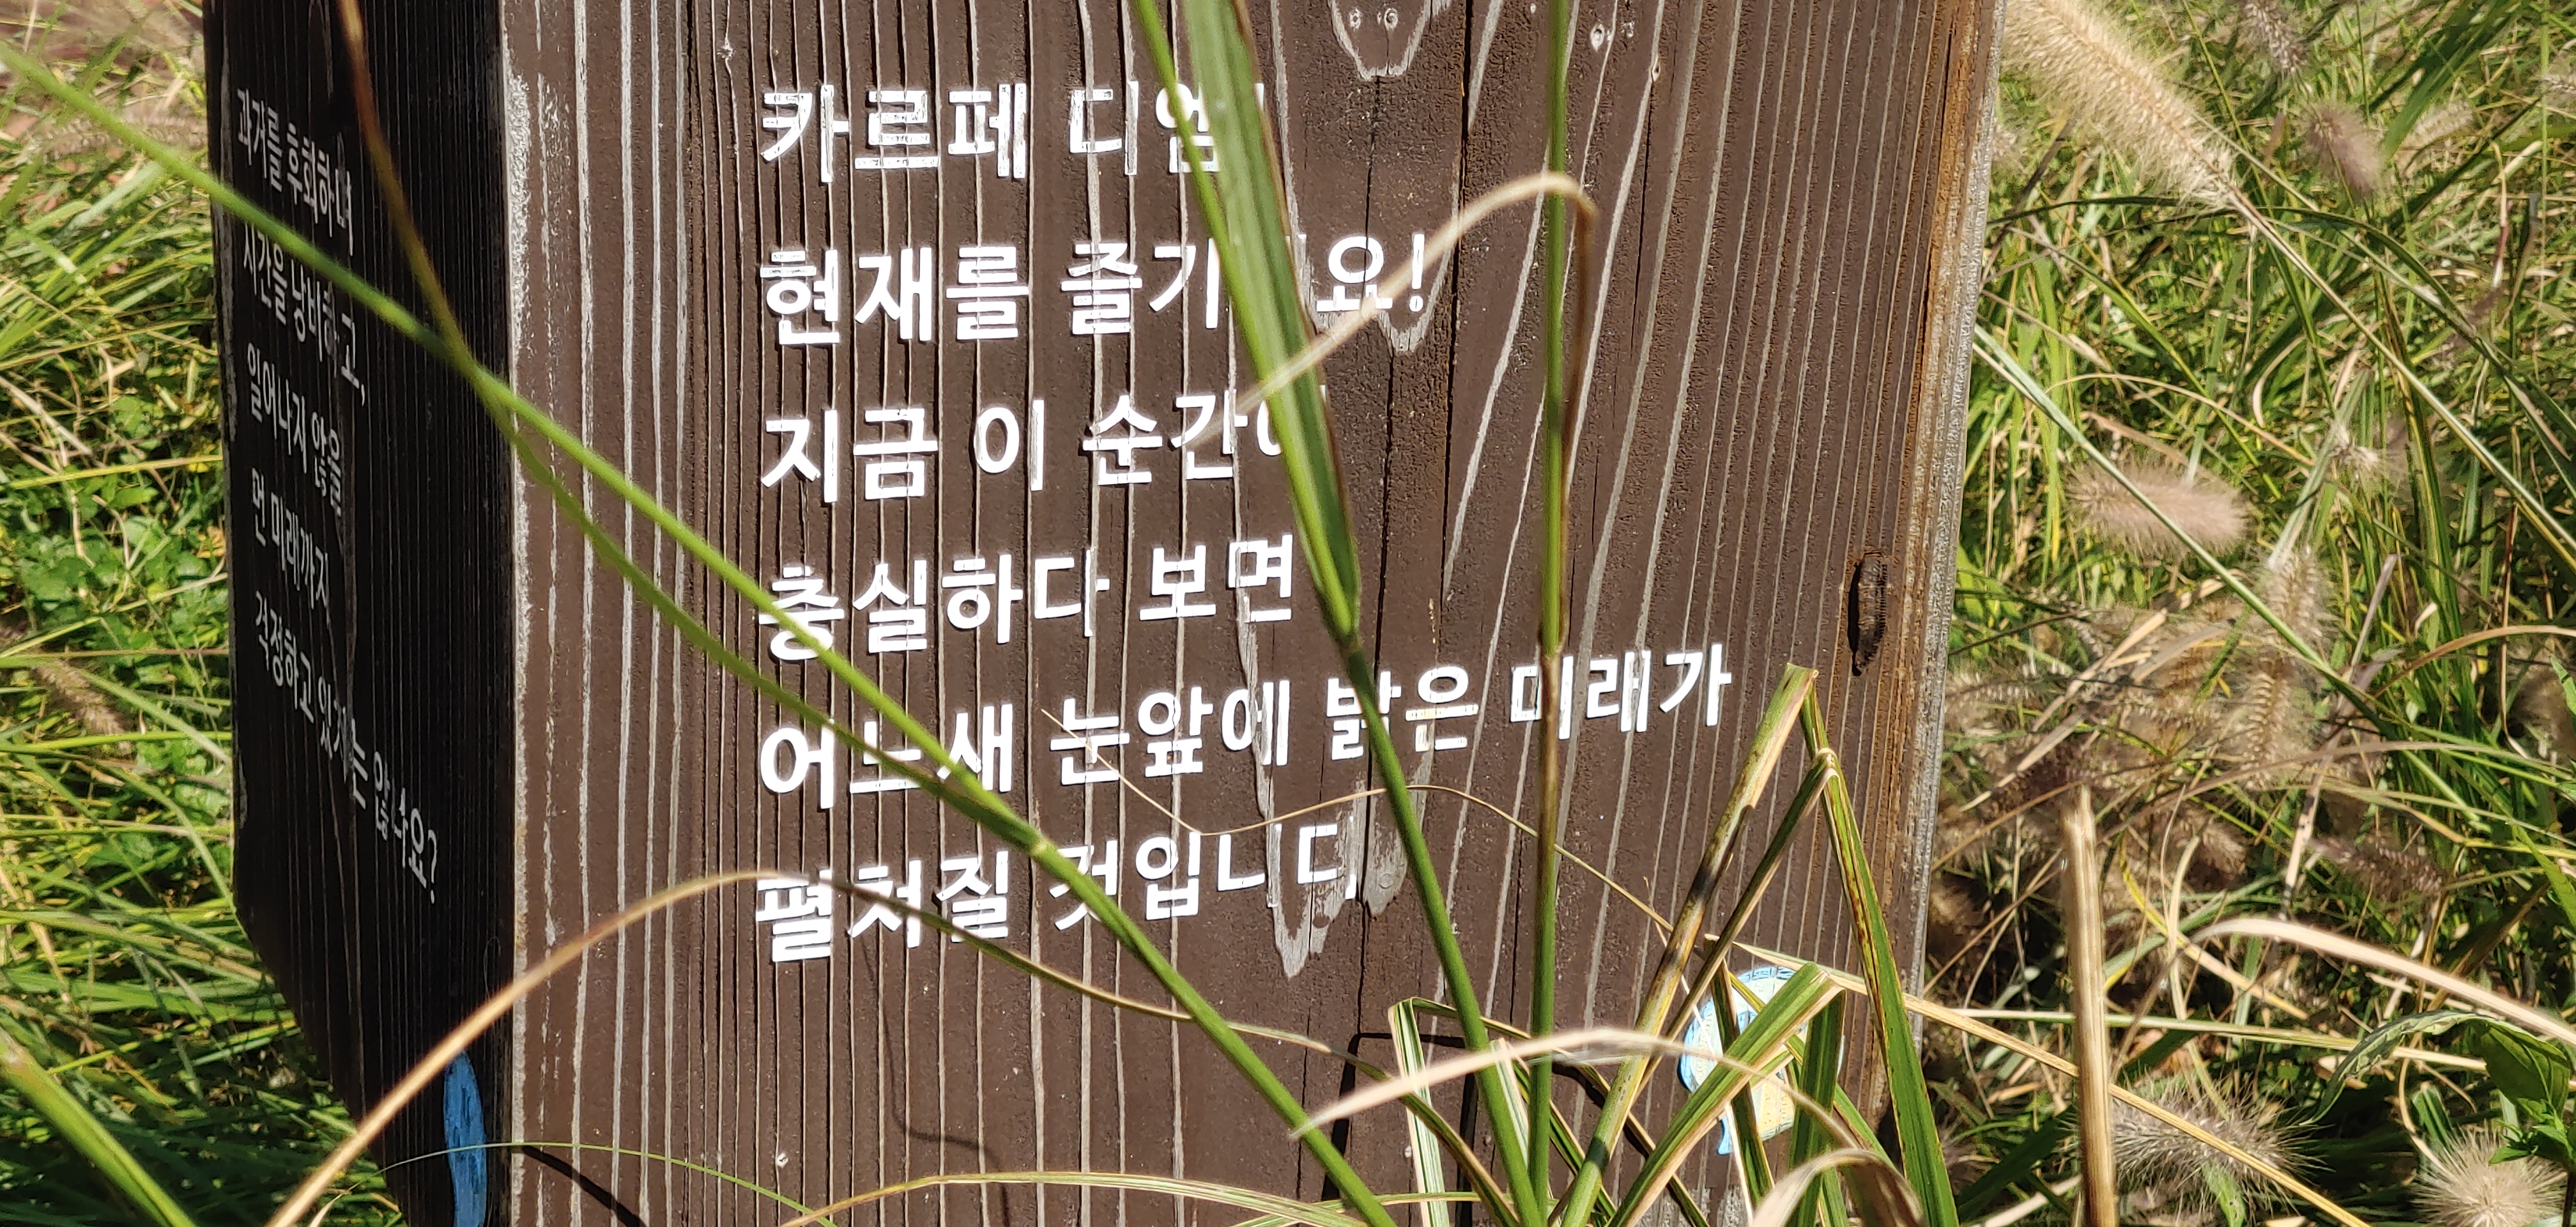 과거를 후회하며
시간을 낭비하고,
일어나지 않을
먼 미래까지
걱정하고 있지는 않나요?
카르페 디엠!
현재를 즐기세요!
지금 이 순간에
충실하다 보면
어느새 눈앞에 밝은 미래가
펼쳐질 것입니다